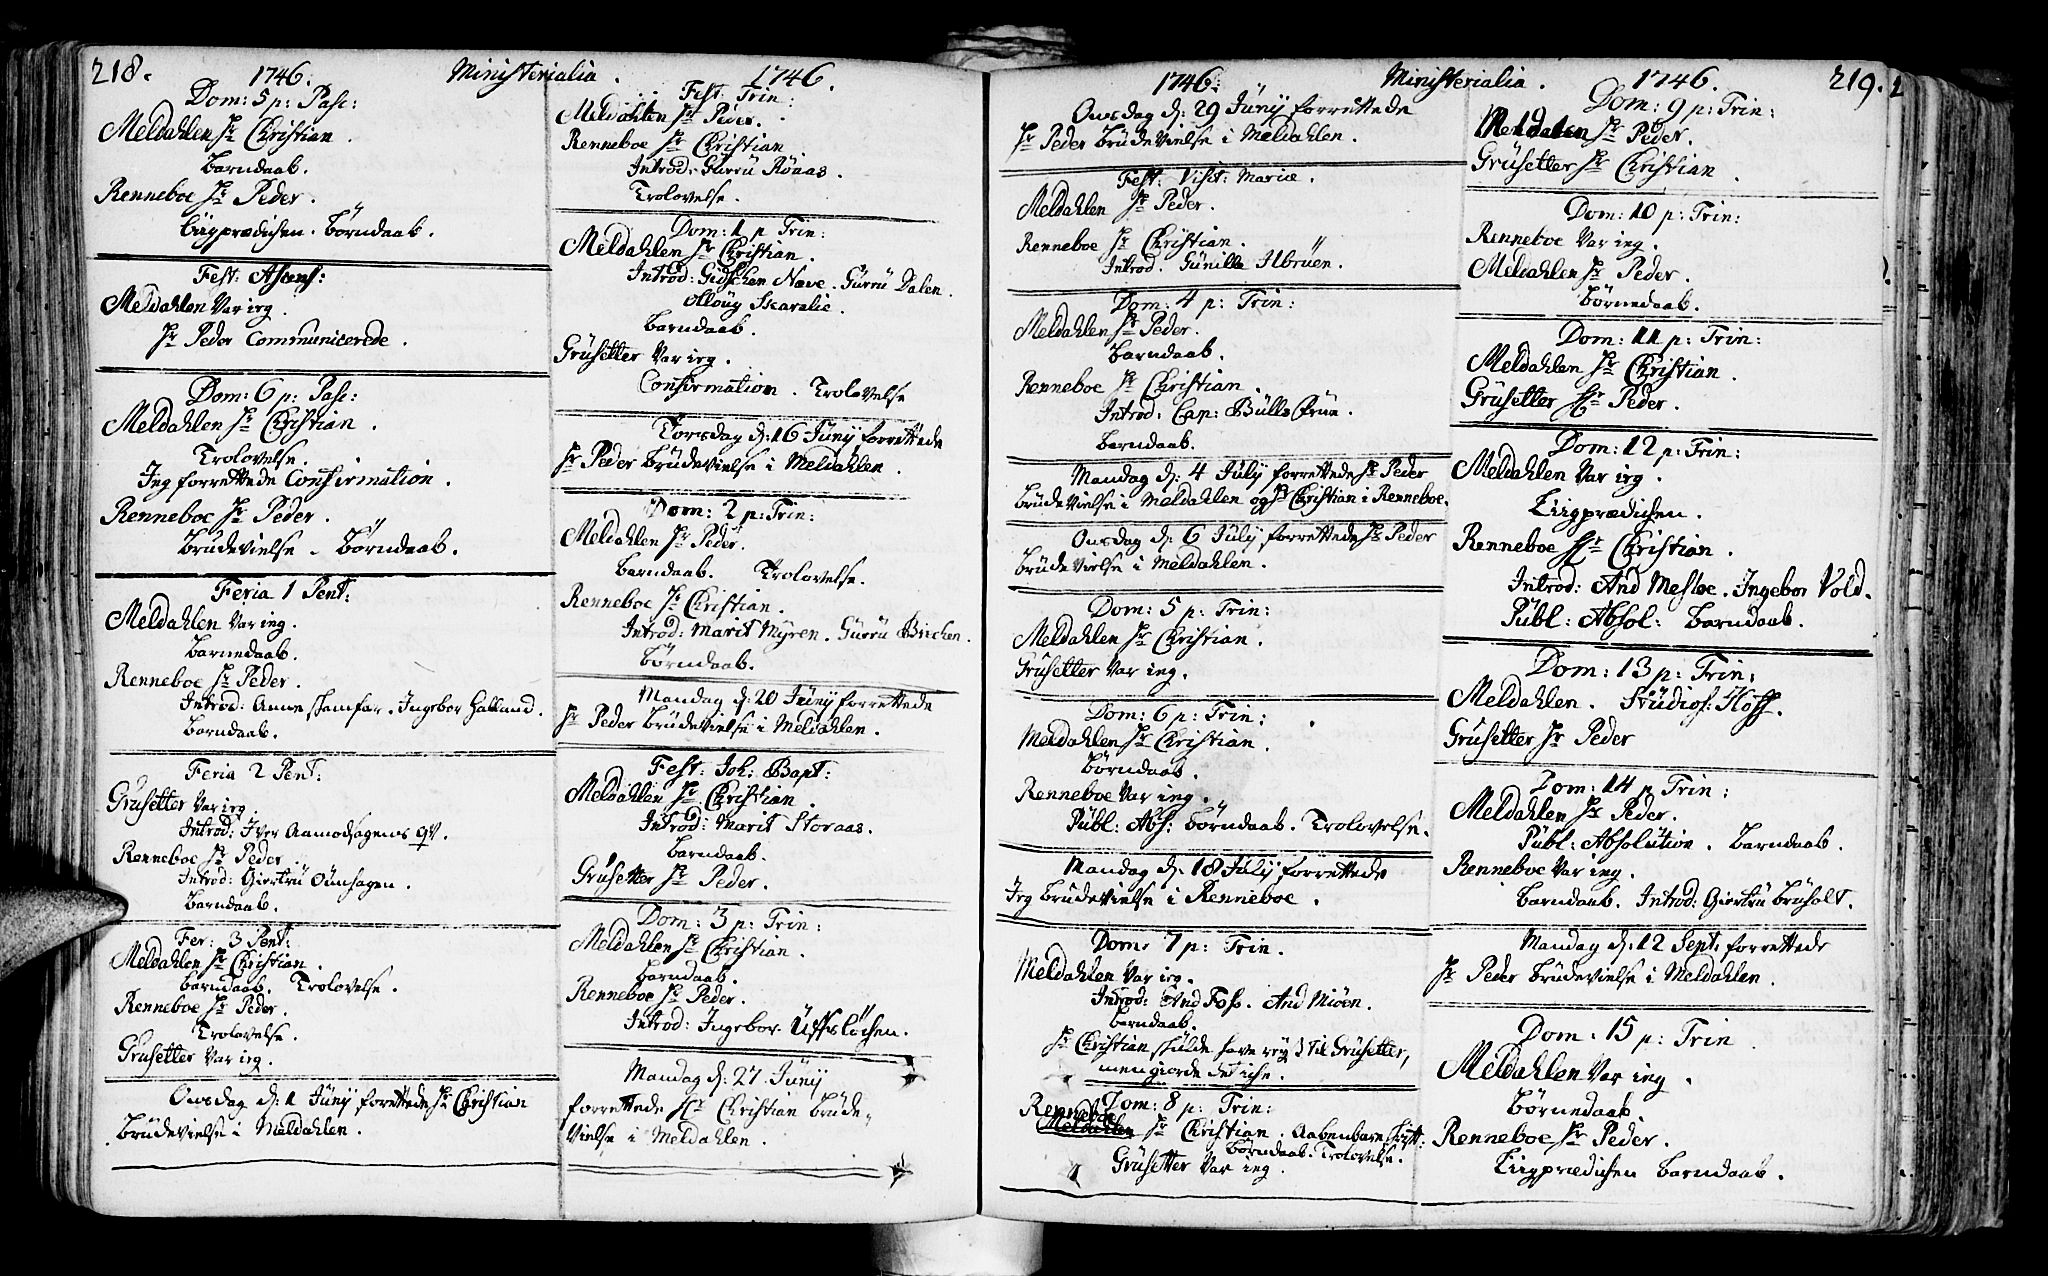 218.
1746. Ministerialia. 1746.
Dom: 5 p: Pasc:
Meldahlen Hr Christian.
Barndaab.
Renneboe Hr Peder.
Liigprædichen. Börndaab.
Fest: Ascens:
Meldahlen Var ieg.
Hr Peder Communicerede.
Dom: 6 p: Pasc:
Meldahlen Hr Christian.
Trolovelse.
Jeg forrettede Confirmation.
Renneboe Hr Peder.
Brudevielse. Börndaab.
Feria 1 Pent:
Meldahlen Var ieg.
Barnedaab.
Renneboe Hr Peder.
Introd: Anne Skamfar. Ingebor Halland.
Barndaab.
Feria 2 Pent:
Grüsetter Var ieg.
Introd: Iver Aamodhagens qv.
Renneboe Hr Peder.
Introd: Giertrü Öünhagen.
Barndaab.
Fer: 3 Pent:
Meldahlen Hr Christian.
Barndaab. Trolovelse.
Renneboe Hr Peder.
Trolovelse.
Grüsetter Var ieg.
Onsdag d: 1 Jüny forrettede Hr Christian
Brüdevielse i Meldahlen.
Fest: Trin:
Meldahlen Hr Peder.
Renneboe Hr Christian.
Introd: Gurrü Röaas.
Trolovelse.
Dom: 1 p Trin:
Meldahlen Hr Christian.
Introd: Gidschen Næve. Gürrü Dalen.
Olloug Skaralie.
Barndaab.
Grüsetter Var ieg.
Confirmation. Trolovelse
Torsdag d: 16 Jüny forrettede
Hr Peder Brüdevielse i Meldahlen.
Dom: 2 p: Trin:
Meldahlen Hr Peder.
Barndaab. Trolovelse.
Renneboe Hr Christian.
Introd: Marit Myren. Gürrü Birchen.
Börndaab.
Mandag d: 20 Jüny forrettede
Hr Peder Brüdevielse i Meldahlen.
Fest: Joh: Bapt:
Meldahlen Hr Christian.
Introd: Marit Storaas.
Barndaab.
Grüsetter Hr Peder.
Dom: 3 p: Trin:
Meldahlen Hr Christian.
Barndaab.
Renneboe Hr Peder.
Introd: Ingebor Üffslöchen.
Mandag d: 27 Jüny
forrettede Hr Christian Brüde-
vielse i Meldahlen.
1746. Ministerialia. 1746. 219.
Onsdag d: 29 Jüny forrettede
Hr Peder Brüdevielse i Meldahlen.
Fest: Visit: Mariæ.
Meldahlen Hr Peder.
Renneboe Hr Christian.
Introd. Günille Ilbrüen.
Dom: 4 p: Trin:
Meldahlen Hr Peder.
Barndaab.
Renneboe Hr Christian.
Introd: Cap: Bülls Früe.
Barndaab.
Mandag d: 4 July forrettede Hr Peder
Brüdevielse i Meldahlen og Hr Christian i Renneboe.
Onsdag d: 6 July forrettede Hr Peder
Brüdevielse i Meldahlen.
Dom: 5 p: Trin:
Meldahlen Hr Christian.
Grüsetter Var ieg.
Dom: 6 p: Trin:
Meldahlen Hr Christian.
Börndaab.
Renneboe Var ieg.
Pübl: Abs: Börndaab. Trolovelse.
Mandag d: 18 July forrettede
Jeg Brüdevielse i Renneboe.
Dom: 7 p: Trin.
Meldahlen Var ieg.
Introd: And Foss. And Mioen.
Barndaab.
Hr Christian skülde have reyst til Grüsetter,
men giorde det iche.
Dom: 8 p: Trin:
Renneboe
Meldahlen Hr Christian. Aabenbare Skrift:
Börndaab. Trolovelse.
Grüsetter Var ieg.
Dom: 9 p: Trin:
Meldahlen Hr Peder.
Grüsetter Hr Christian.
Dom: 10 p: Trin:
Renneboe Var ieg.
Meldahlen Hr Peder.
Börnedaab.
Dom: 11 p: Trin:
Meldahlen Hr Christian.
Grüsetter Hr Peder.
Dom: 12 p: Trin:
Meldahlen Var ieg.
Liigprædichen.
Renneboe Hr Christian.
Introd: And Mesloe. Ingebor Vold.
Pübl: Absol: Barndaab.
Dom: 13 p: Trin:
Meldahlen. Stüdios: Hoff.
Grüsetter Hr Peder
Dom: 14 p Trin:
Meldahlen Hr Peder.
Pübl: Absolütion. Barndaab.
Renneboe Var ieg.
Barndaab. Introd: Giertrü Brüholt.
Mandag d: 12 Sept: forrettede
Hr Peder Brüdevielse i Meldahlen.
Dom: 15 p: Trin
Meldahlen Var ieg.
Börnedaab.
Renneboe Hr Peder.
Liigprædichen Barndaab.